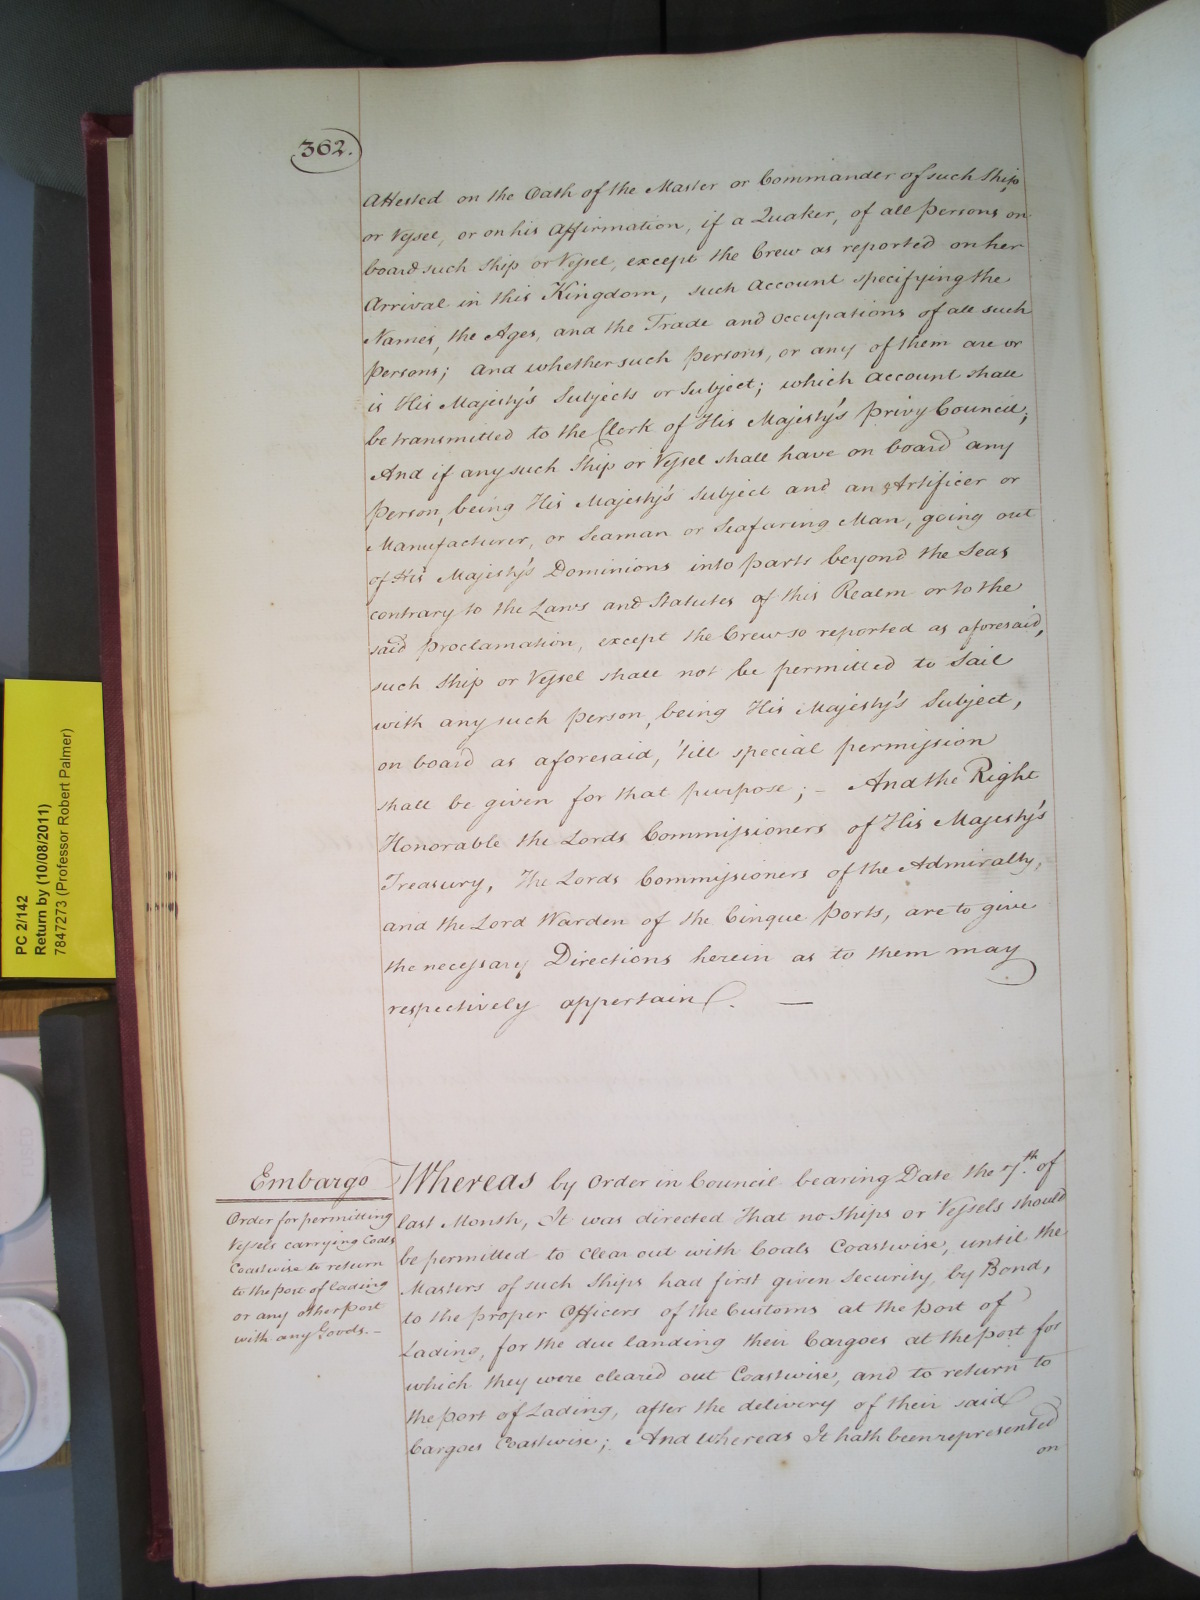 362.
Attested on the Oath of the Master or Commander of such Ship
or Vessel, or on his Affirmation, if a Quaker, of all Persons on
board such Ship or Vessel, except the Crew as reported on her
Arrival in this Kingdom, such Account specifying the
Names, the Ages, and the Trade and Occupations of all such
Persons; and whether such Persons, or any of them are or
is His Majesty's Subjects or Subject; which Account shall
be transmitted to the Clerk of His Majesty's Privy Council;
And if any such Ship or Vessel shall have on board any
Person, being His Majesty's Subject and an Artificer or
Manufacturer, or Seaman or Seafaring Man, going out
of His Majesty's Dominions into parts beyond the Seas
contrary to the Laws and Statutes of this Realm or to the
said Proclamation, except the Crew so reported as aforesaid,
such Ship or Vessel shall not be permitted to Sail
with any such person, being His Majesty's Subject,
on board as aforesaid, 'till special permission
shall be given for that purpose; – And the Right
Honorable the Lords Commissioners of His Majesty's
Treasury, The Lords Commissioners of the Admiralty,
and the Lord Warden of the Cinque Ports, are to give
the necessary Directions herein as to them may
respectively appertain. —
Embargo
Order for permitting
Vessels carrying Coals
Coastwise to return
to the Port of lading
or any other port
with any Goods. –
Whereas by Order in Council bearing Date the 7.th of
last Month, It was directed that no Ships or Vessels should
be permitted to clear out with Coals Coastwise, until the
Masters of such Ships had first given Security, by Bond,
to the proper Officers of the Customs at the Port of
Lading, for the due landing their Cargoes at the port for
which they were cleared out Coastwise, and to return to
the port of Lading, after the delivery of their said
Cargoes Coastwise; And Whereas It hath been represented
on
PC 2/142
Return by (10/08/2011)
7847273 (Professor Robert Palmer)